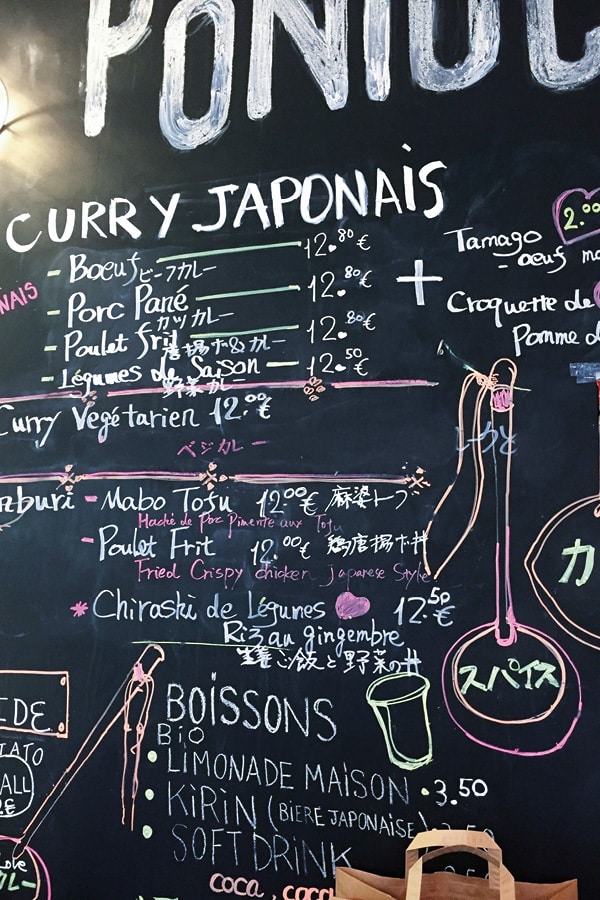 CURRY JAPONAIS
- Boeuf 12.80€
ビーフカレー
- Porc Pané 12.80€
カツカレー
- Poulet frit 12.80€
唐揚げ&カレー
- Légumes de Saison 12.50€
野菜カレー
+
2.00
Tamago
- oeuf
Croquette de
Pomme d
NAIS
Curry Vegétarien 12.00€
ベジカレー
nburi - Mabo Tofu 12.00€ 麻婆トーフ
Haché de Porc Pimente aux Tofu
- Poulet Frit 12.00€ 鶏唐揚げ丼
Fried Crispy chicken japanese Style
* Chiraski de Légumes 12.50€
Riz au gingembre
生姜ご飯と野菜の丼
カ
スパイス
IDE
TATO
ALL
Love
カレー
BOISSONS
BIO
• LIMONADE MAISON • 3.50
• KIRIN (BIERE JAPONAISE)
• SOFT DRINK
COCA,